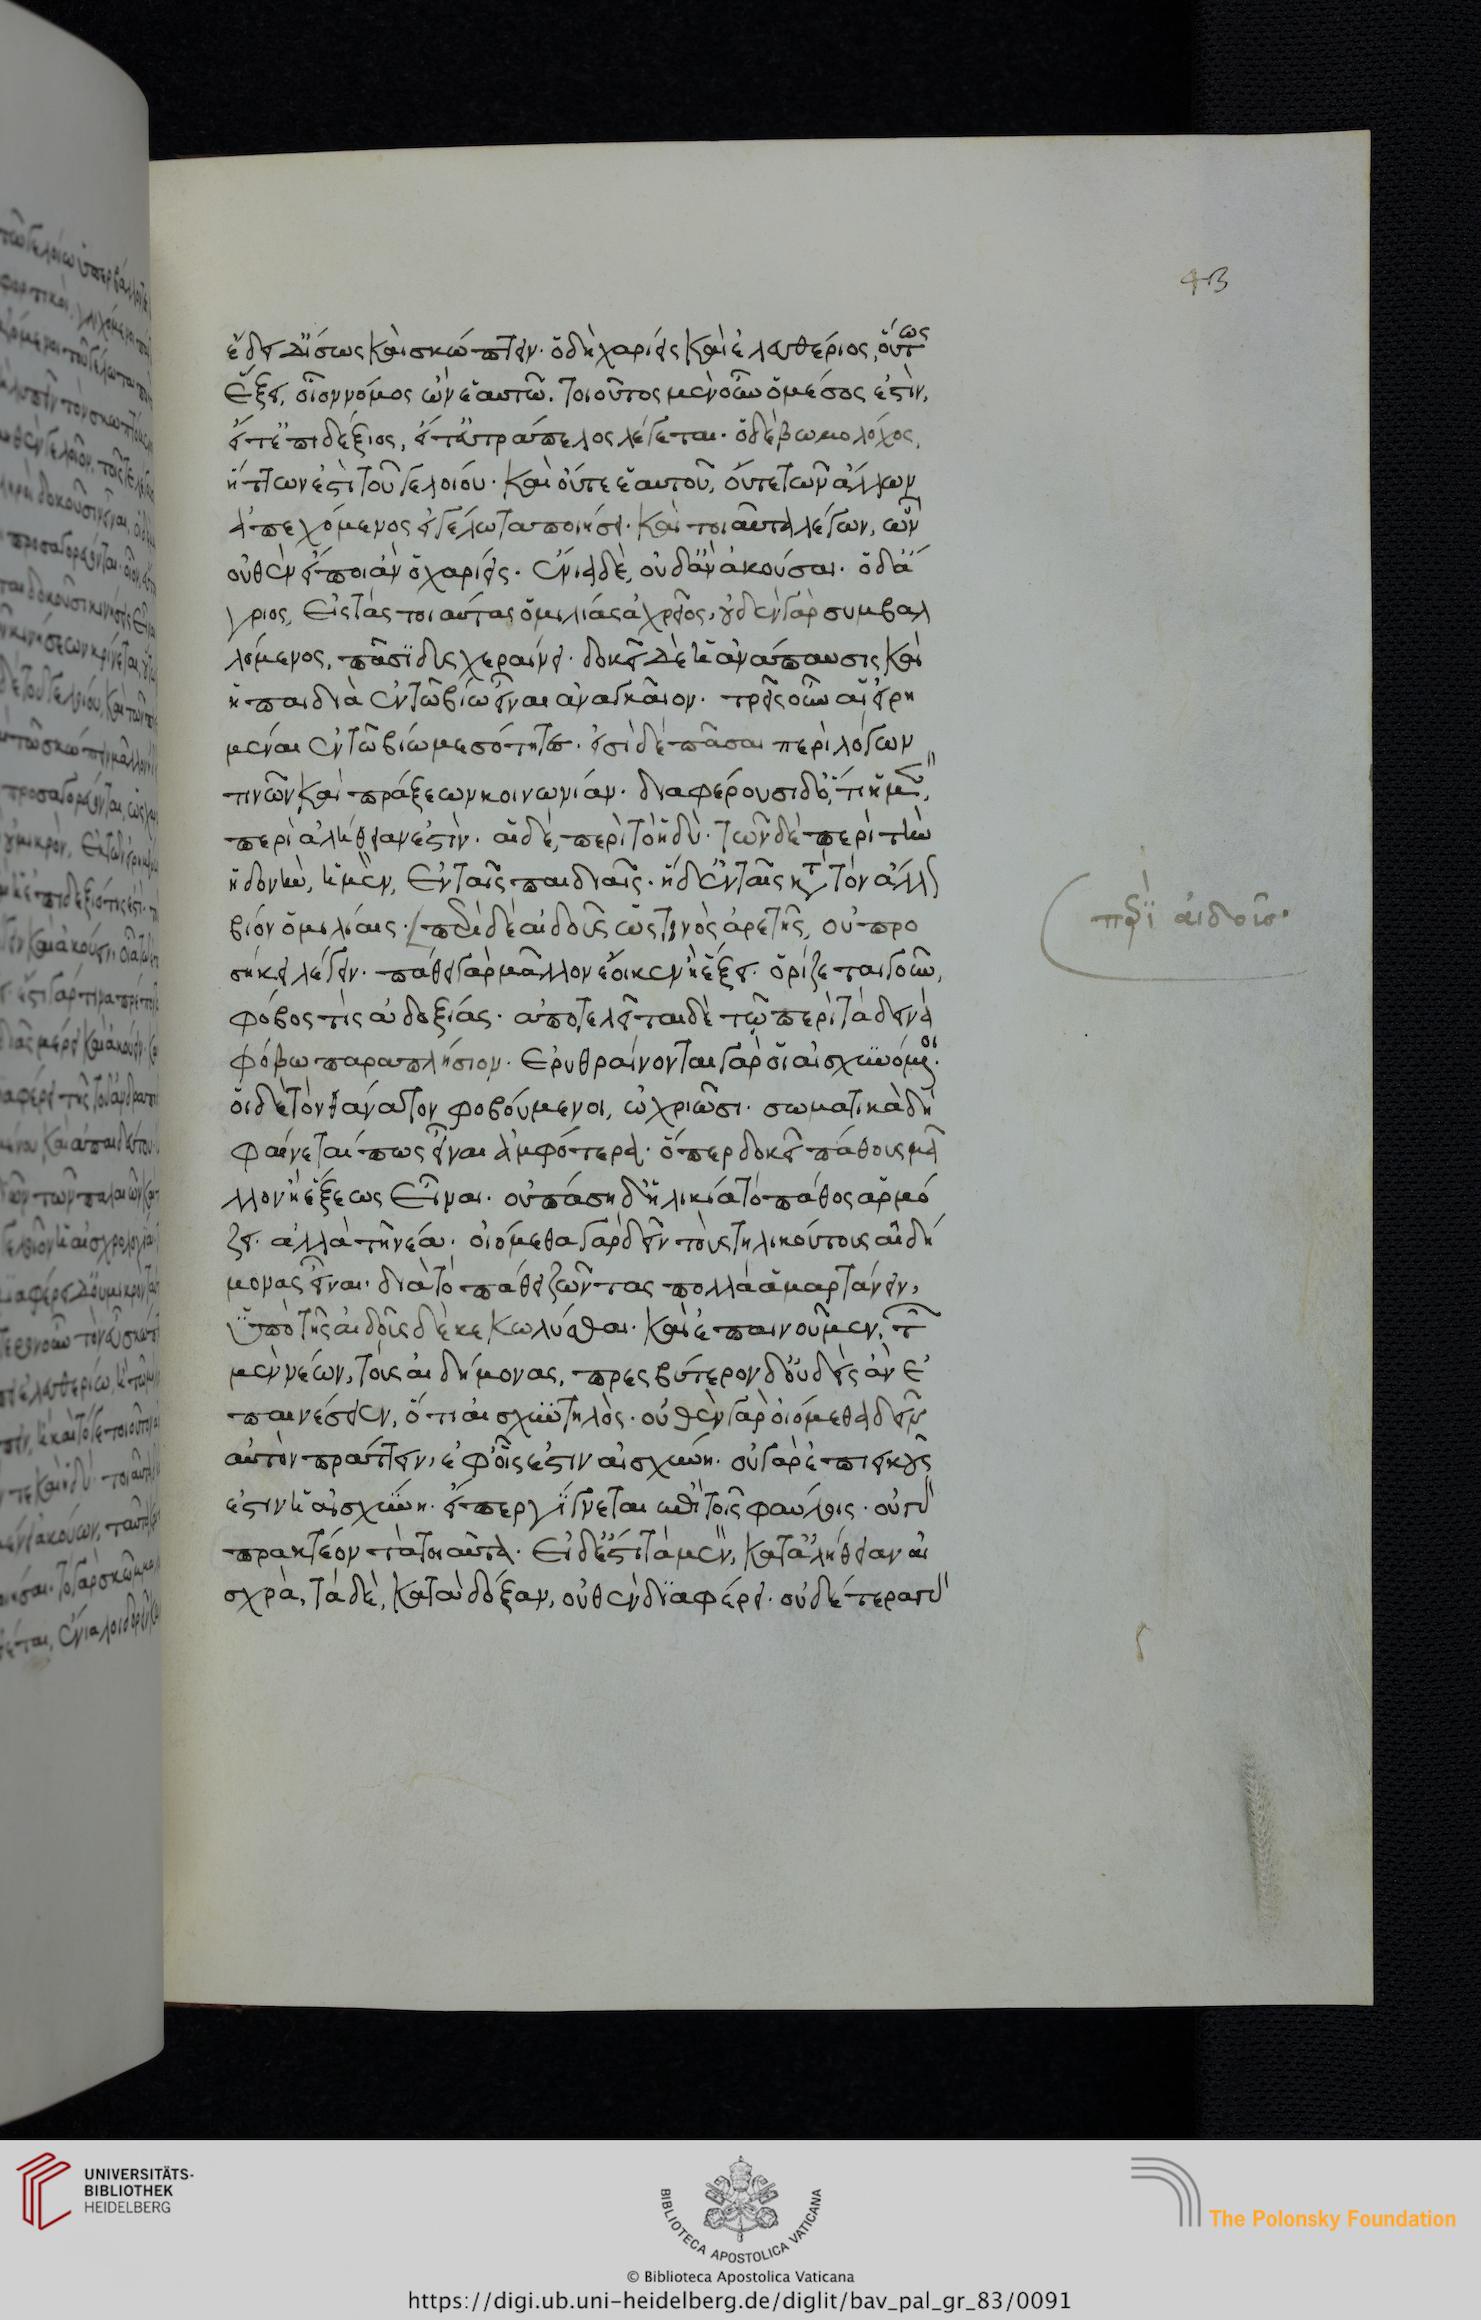 43
ἔδει δ' ἴσως καὶ σκώπτειν· ὁ δὴ χαρίεις καὶ ἐλευθέριος, οὕτως
ἕξει, οἷον νόμος ὢν ἑαυτῶ. τοιοῦτος μὲν οὖν ὁ μέσος ἐστὶν,
εἴτ' ἐπιδέξιος, εἴτ' εὐτράπελος λέγεται· ὁ δὲ βωμολόχος,
ἥττων ἐστὶ τοῦ γελοίου· καὶ οὔτε ἑαυτοῦ, οὔτε τῶν ἄλλων
ἀπεχόμενος εἰ γέλωτα ποιήσει· καὶ τοιαῦτα λέγων, ὧν
οὐθὲν εἴποι ἂν ὁ χαρίεις· ἔνια δὲ, οὐδ' ἂν ἀκούσαι· ὁ δ' ἄ
γριος, εἰς τὰς τοιαύτας ὁμιλίας ἀχρεῖος, οὐδὲν γὰρ συμβαλ
λόμενος, πᾶσι δυσχεραίνει· δοκεῖ δὲ ἡ ἀνάπαυσις καὶ
ἡ παιδιὰ ἐν τῶ βίω εἶναι ἀναγκαῖον· τρεῖς οὖν αἱ εἰρη
μέναι ἐν τῶ βίω μεσότητες· εἰσὶ δὲ πᾶσαι περὶ λόγων
τινῶν καὶ πράξεων κοινωνίαν· διαφέρουσι δ', ὅτι ἡ μὲν,
περὶ ἀλήθειαν ἐστὶν· αἱ δὲ, περὶ τὸ ἡδὺ· τῶν δὲ περὶ τὴν
ἡδονὴν, ἡ μὲν, ἐν ταῖς παιδιαῖς· ἡ δ' ἐν ταῖς κατὰ τὸν ἄλλον
βίον ὁμιλίαις· περὶ δὲ αἰδοῦς ὥς τινος ἀρετῆς, οὐ προ
σήκει λέγειν· πάθει γὰρ μᾶλλον ἔοικεν ἢ ἕξει· ὁρίζεται γοῦν,
φόβος τὶς ἀδοξίας· ἀποτελεῖται δὲ τῶ περὶ τὰ δεινὰ
φόβω παραπλήσιον· ἐρυθραίνονται γὰρ οἱ αἰσχυνόμενοι·
οἱ δὲ τὸν θάνατον φοβούμενοι, ὠχριῶσι· σωματικὰ δὴ
φαίνεταί πως εἶναι ἀμφότερα· ὅπερ δοκεῖ πάθους μᾶ
λλον ἢ ἕξεως εἶναι· οὐ πάση δ' ἡλικία τὸ πάθος ἁρμό
ζει· ἀλλὰ τῆ νέα· οἰόμεθα γὰρ δεῖν τοὺς τηλικούτους αἰδή
μονας εἶναι· διὰ τὸ πάθει ζῶντας πολλὰ ἁμαρτάνειν,
ὑπὸ τῆς αἰδοῦς δὲ κεκωλύσθαι· καὶ ἐπαινοῦμεν, τῶν
μὲν νέων, τοὺς αἰδήμονας, πρεσβύτερον δ' οὐδεὶς ἂν ἐ
παινέσειεν, ὅτι αἰσχυντηλὸς· οὐθὲν γὰρ οἰόμεθα δεῖν
αὐτὸν πράττειν, ἐφ' οἷς ἐστιν αἰσχύνη· οὐ γὰρ ἐπιεικοῦς
ἐστιν ἡ αἰσχύνη· εἴπερ γίγνεται ἐπὶ τοῖς φαύλοις· οὐ γὰρ
πρακτέον τὰ τοιαῦτα· εἰ δ' ἐστὶ τὰ μὲν, κατ' ἀλήθειαν αἰ
σχρὰ, τὰ δὲ, κατὰ δόξαν, οὐθὲν διαφέρει· οὐδέτερα γὰρ
περὶ αἰδοῦς·
UNIVERSITÄTS-
BIBLIOTHEK
HEIDELBERG
BIBLIOTECA APOSTOLICA VATICANA
© Biblioteca Apostolica Vaticana
The Polonsky Foundation
https://digi.ub.uni-heidelberg.de/diglit/bav_pal_gr_83/0091